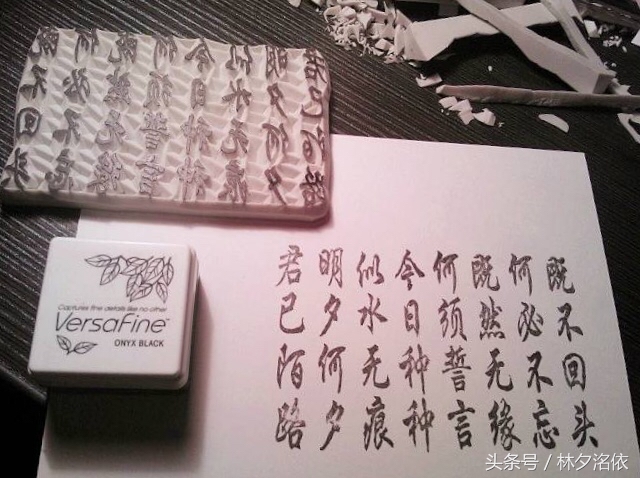 既不回头
何必不忘
既然无缘
何须誓言
今日种种
似水无痕
明夕何夕
君已陌路
Captures fine details like no other
VersaFine
ONYX BLACK
头条号 / 林夕洺依